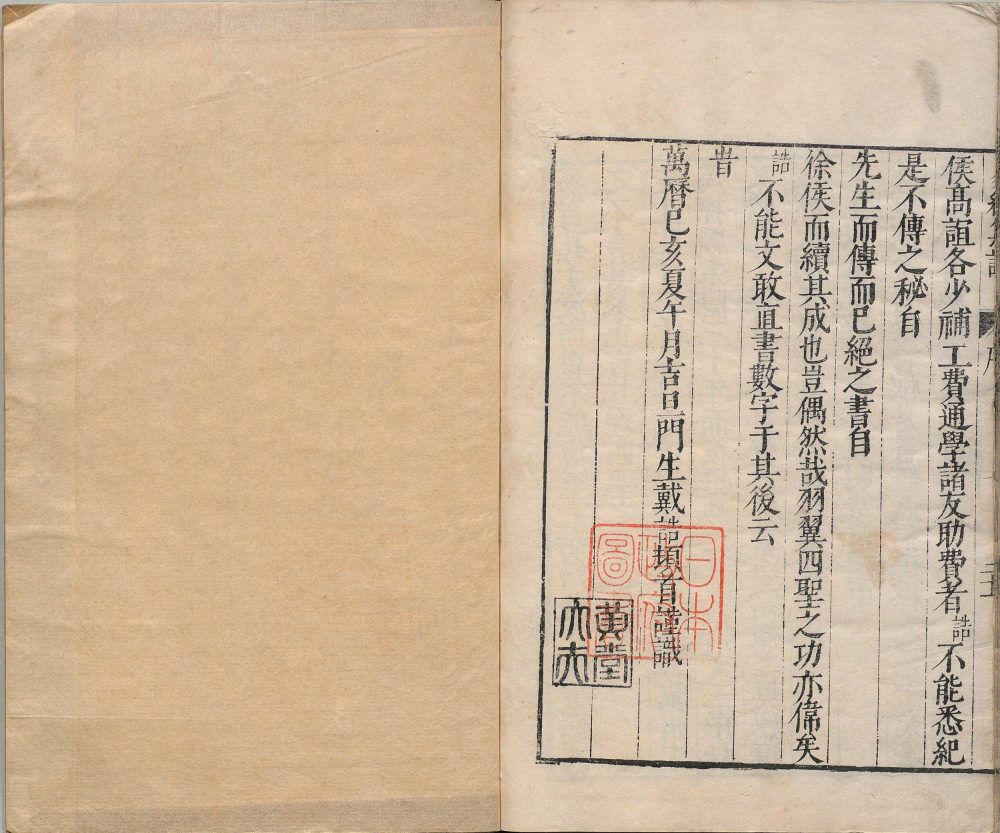 序
侯高誼各少補工費通學諸友助費者誥不能悉紀
是不傳之秘自
先生而傳而已絕之書自
徐侯而續其成也豈偶然哉羽翼四聖之功亦偉矣
誥不能文敢直書數字于其後云
旹
萬曆己亥夏午月吉旦門生戴誥頓首謹識
日本
政府
圖書